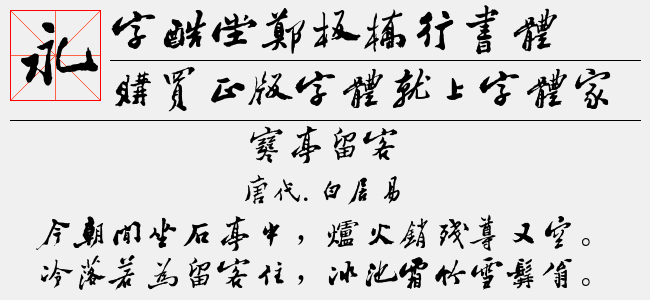 永
字酷堂鄭板橋行書體
購買正版字體就上字體家
寒亭留客
唐代.白居易
今朝閒坐石亭中，爐火銷殘尊又空。
冷落若為留客住，冰池霜竹雪髯翁。